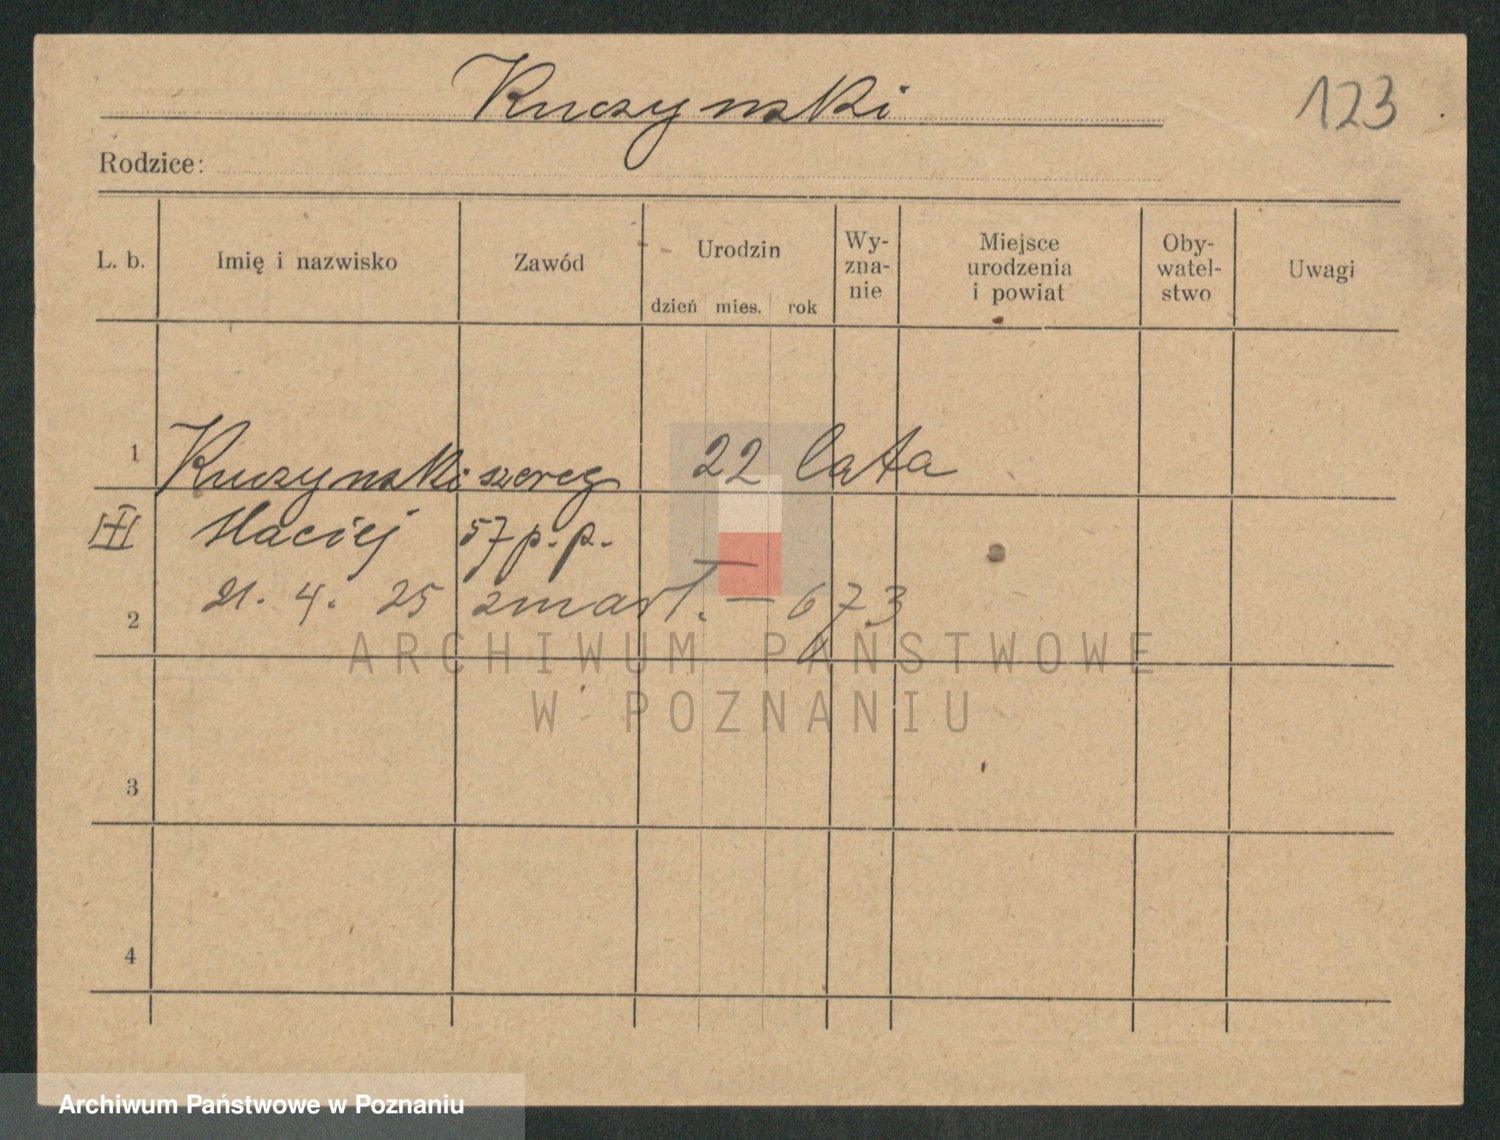 Kuczynski
123
Rodzice:
L. b.
Imię i nazwisko
Zawód
Urodzin
dzień mies. rok
Wy-
zna-
nie
Miejsce
urodzenia
i powiat
Oby-
watel-
stwo
Uwagi
1 Kuczynski szereg 22 lata
Maciej 57 p.p.
2 21. 4. 25 zmarł. — 673
3
4
ARCHIWUM PAŃSTWOWE
W POZNANIU
Archiwum Państwowe w Poznaniu